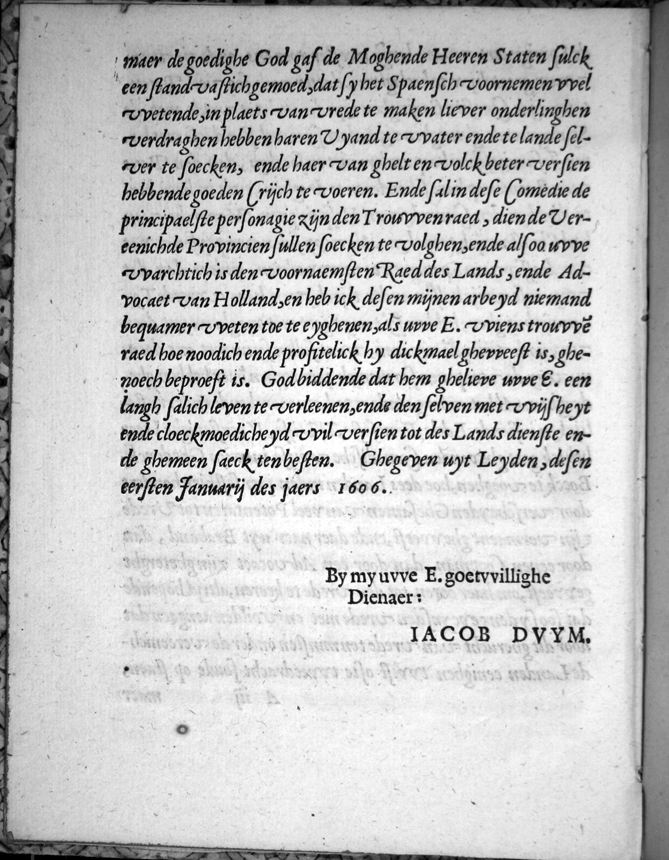 maer de goedighe God gaf de Moghende Heeren Staten sulck
een standvastich gemoed, dat sy het Spaensch voornemen vvel
vvetende, in plaets van vrede te maken liever onderlinghen
verdraghen hebben haren Vyand te vvater ende te lande sel-
ver te soecken, ende haer van ghelt en volck beter versien
hebbende goeden Crijch te voeren. Ende sal in dese Comedie de
principaelste personagie zijn den Trouvven raed, dien de Ver-
eenichde Provincien sullen soecken te volghen, ende alsoo uvve
vvarchtich is den voornaemsten Raed des Lands, ende Ad-
vocaet van Holland, en heb ick desen mijnen arbeyd niemand
bequamer vveten toe te eyghenen, als uvve E. vviens trouvvē
raed hoe noodich ende profitelick hy dickmael ghevveest is, ghe-
noech beproeft is. God biddende dat hem ghelieve uvve E. een
langh salich leven te verleenen, ende den selven met vvijsheyt
ende cloeckmoedicheyd vvil versien tot des Lands dienste en-
de ghemeen saeck ten besten. Ghegeven uyt Leyden, desen
eersten Januarij des jaers 1606.
By my uvve E. goetvvillighe
Dienaer:
IACOB DVYM.